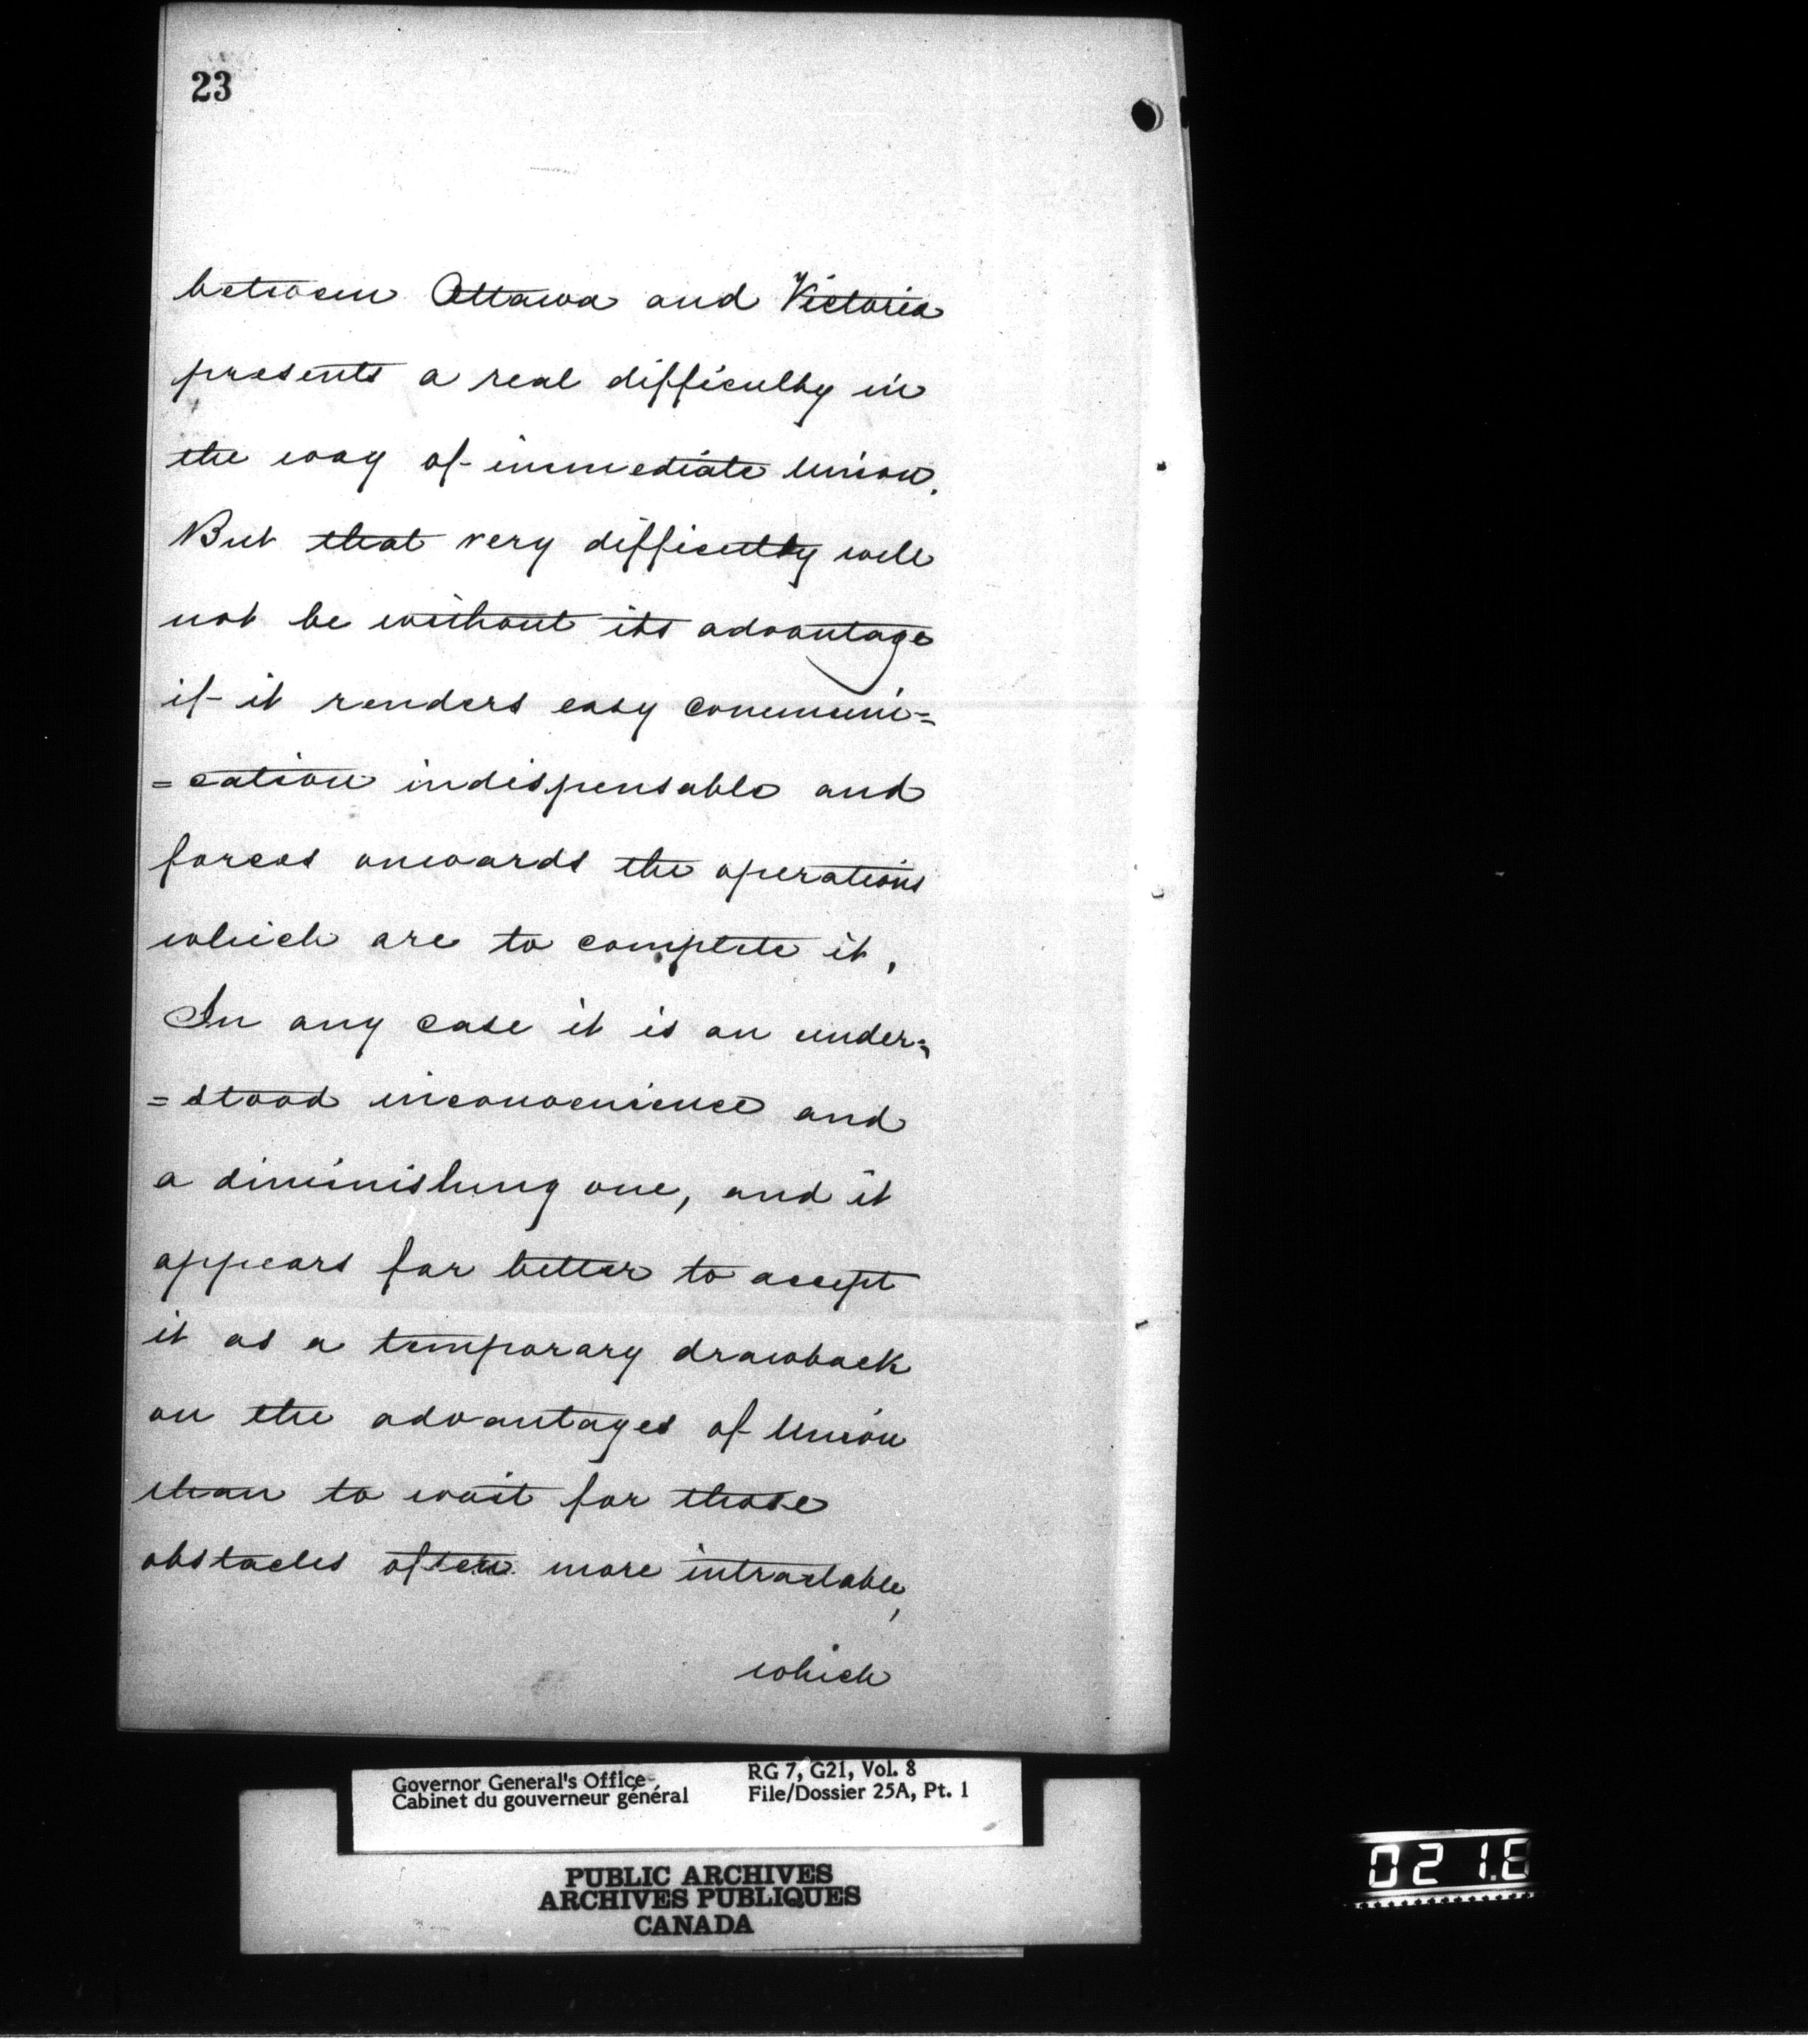 23
between Ottawa and Victoria
presents a real difficulty in
the way of immediate Union.
But that very difficulty will
not be without its advantage
if it renders easy communi=
=cation indispensable and
forces onwards the operations
which are to complete it.
In any case it is an under=
=stood inconvenience and
a diminishing one, and it
appears far better to accept
it as a temporary drawback
on the advantages of Union
than to wait for those
obstacles often more intractable,
which
Governor General's Office
Cabinet du gouverneur général
RG 7, G21, Vol. 8
File/Dossier 25A, Pt. 1
PUBLIC ARCHIVES
ARCHIVES PUBLIQUES
CANADA